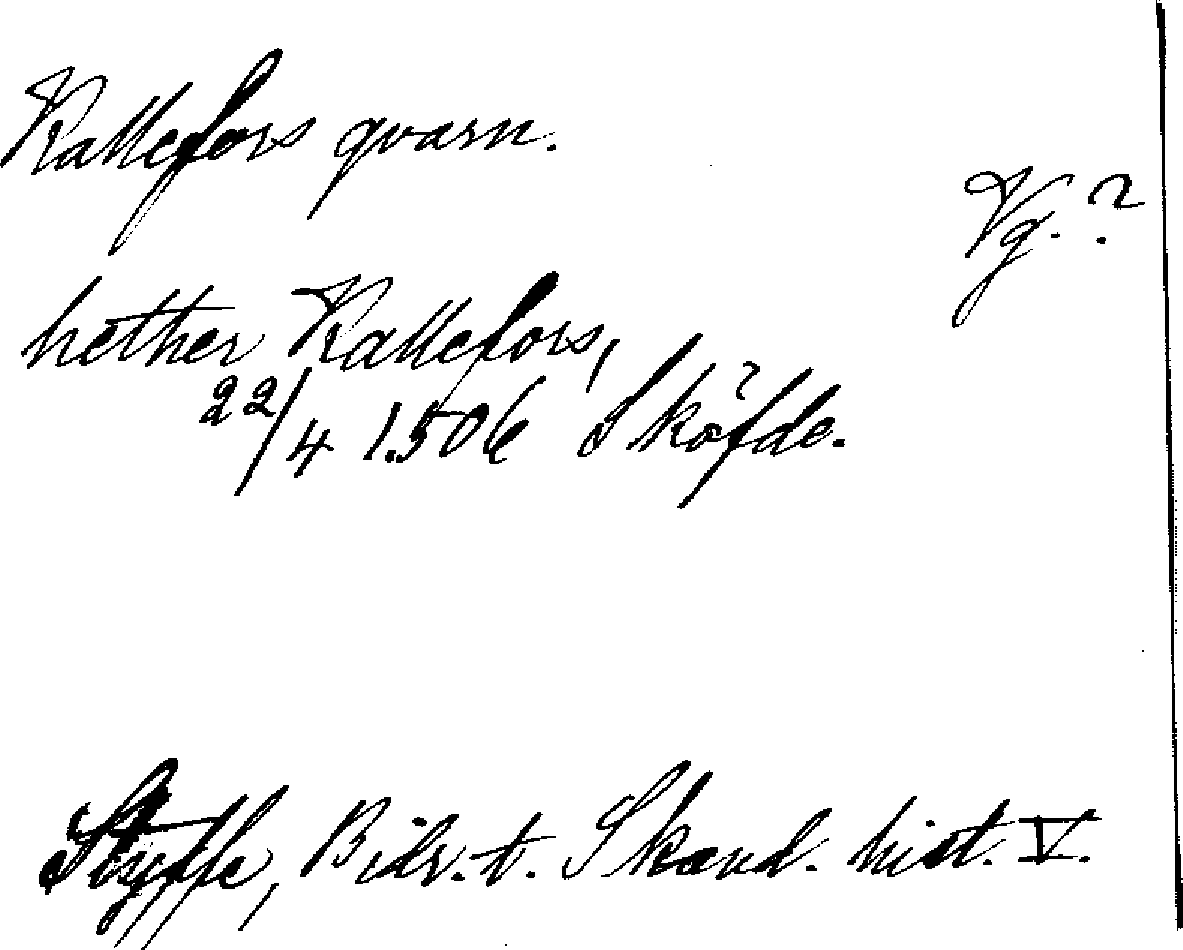 Rallefors qvarn.
Vg. ?
hether Rallefors,
22/4 1506 Sköfde.
Styffe, Bidr. t. Skand. hist. V.